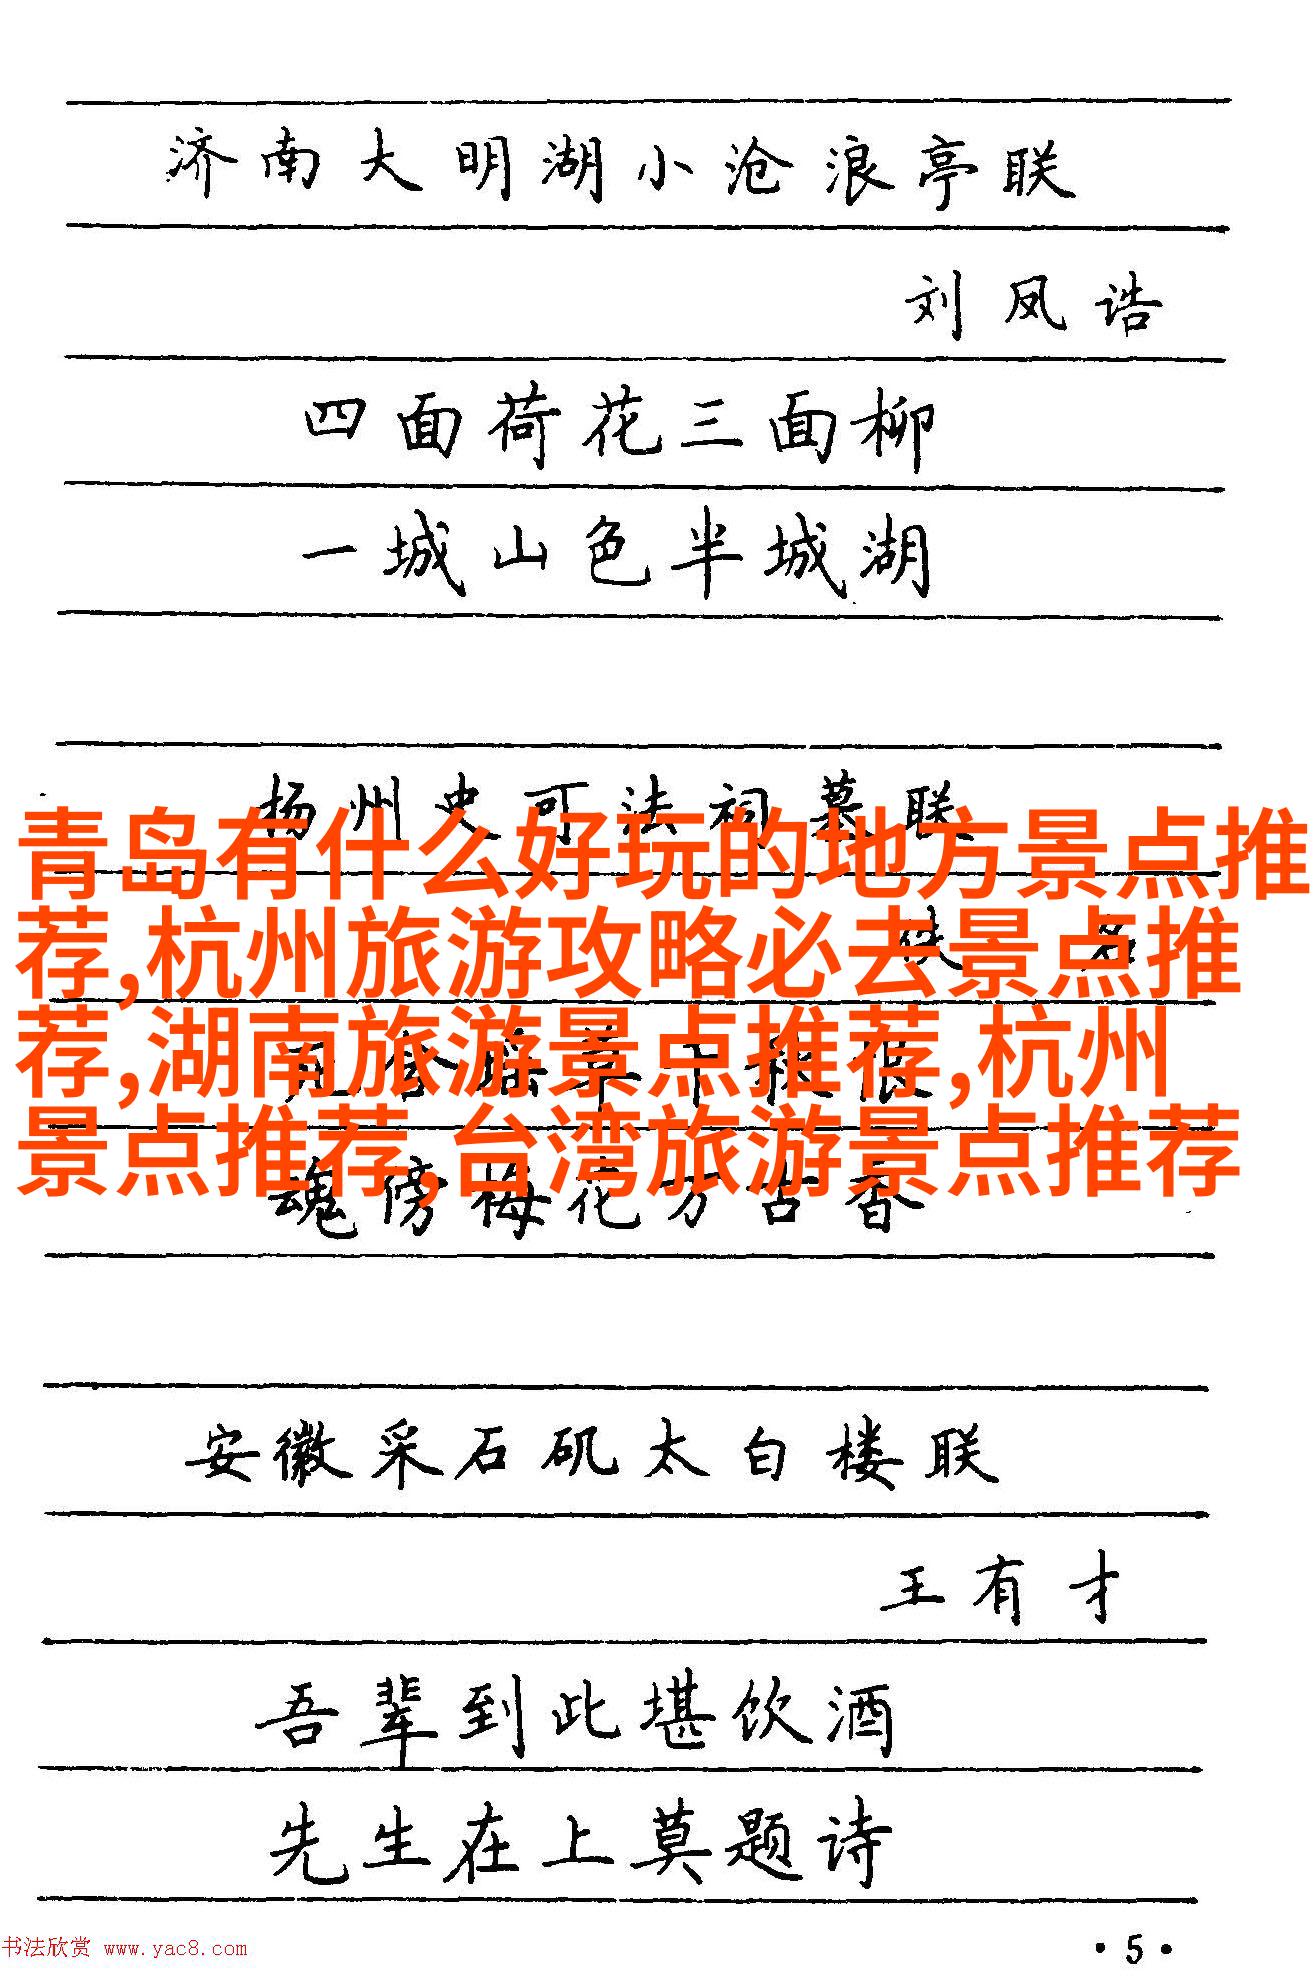 济南大明湖小沧浪亭联
刘凤诰
四面荷花三面柳
一城山色半城湖
扬州史可法祠墓联
青岛有什么好玩的地方景点推
荐,杭州旅游攻略必去景点推
荐,湖南旅游景点推荐,杭州
景点推荐,台湾旅游景点推荐
魂傍梅花万古香
安徽采石矶太白楼联
王有才
吾辈到此堪饮酒
先生在上莫题诗
书法欣赏 www.yac8.com
·5·